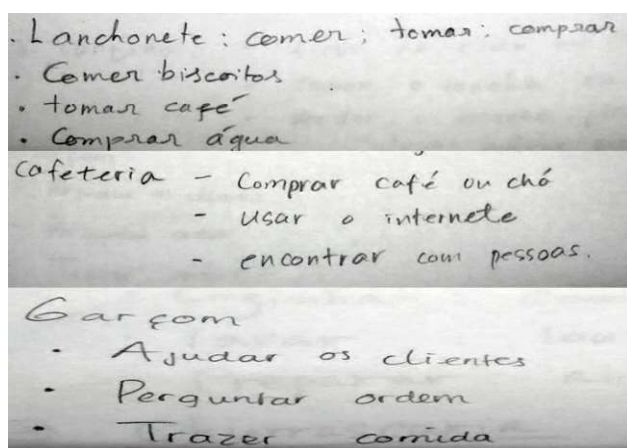 . Lanchonete : comer ; tomar ; comprar
. Comer biscoitos
. tomar café
. Comprar água
Cafeteria - Comprar café ou chá
- usar o internete
- encontrar com pessoas.
Garçom
• Ajudar os clientes
• Perguntar ordem
• Trazer comida